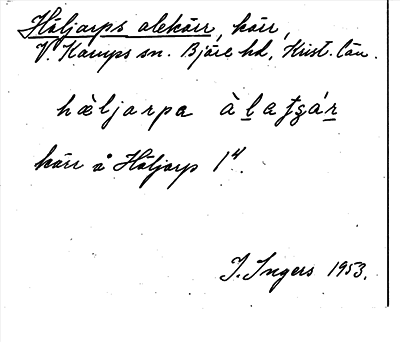 Höljarps alekärr, kärr,
V. Karups sn. Bjäre hd, Krist. län.
hæljarpa àlaʈʂár
kärr å Höljarp 1⁴.
I. Ingers 1953.